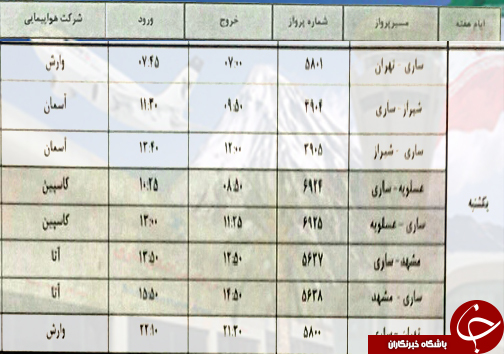 ایام هفته	مسیرپرواز	شماره پرواز	خروج	ورود	شرکت هواپیمایی
یکشنبه
ساری - تهران	۵۸۰۱	۰۷:۰۰	۰۷:۴۵	وارش
شیراز - ساری	۳۹۰۴	۰۹:۵۰	۱۱:۳۰	آسمان
ساری - شیراز	۳۹۰۵	۱۲:۰۰	۱۳:۴۰	آسمان
عسلویه - ساری	۶۹۲۴	۰۸:۵۰	۱۰:۲۵	کاسپین
ساری - عسلویه	۶۹۲۵	۱۱:۲۵	۱۳:۰۰	کاسپین
مشهد - ساری	۵۶۳۷	۱۲:۵۰	۱۳:۵۰	آتا
ساری - مشهد	۵۶۳۸	۱۴:۵۰	۱۵:۵۰	آتا
تهران - ساری	۵۸۰۰	۲۱:۳۰	۲۲:۱۰	وارش
باشگاه خبرنگاران